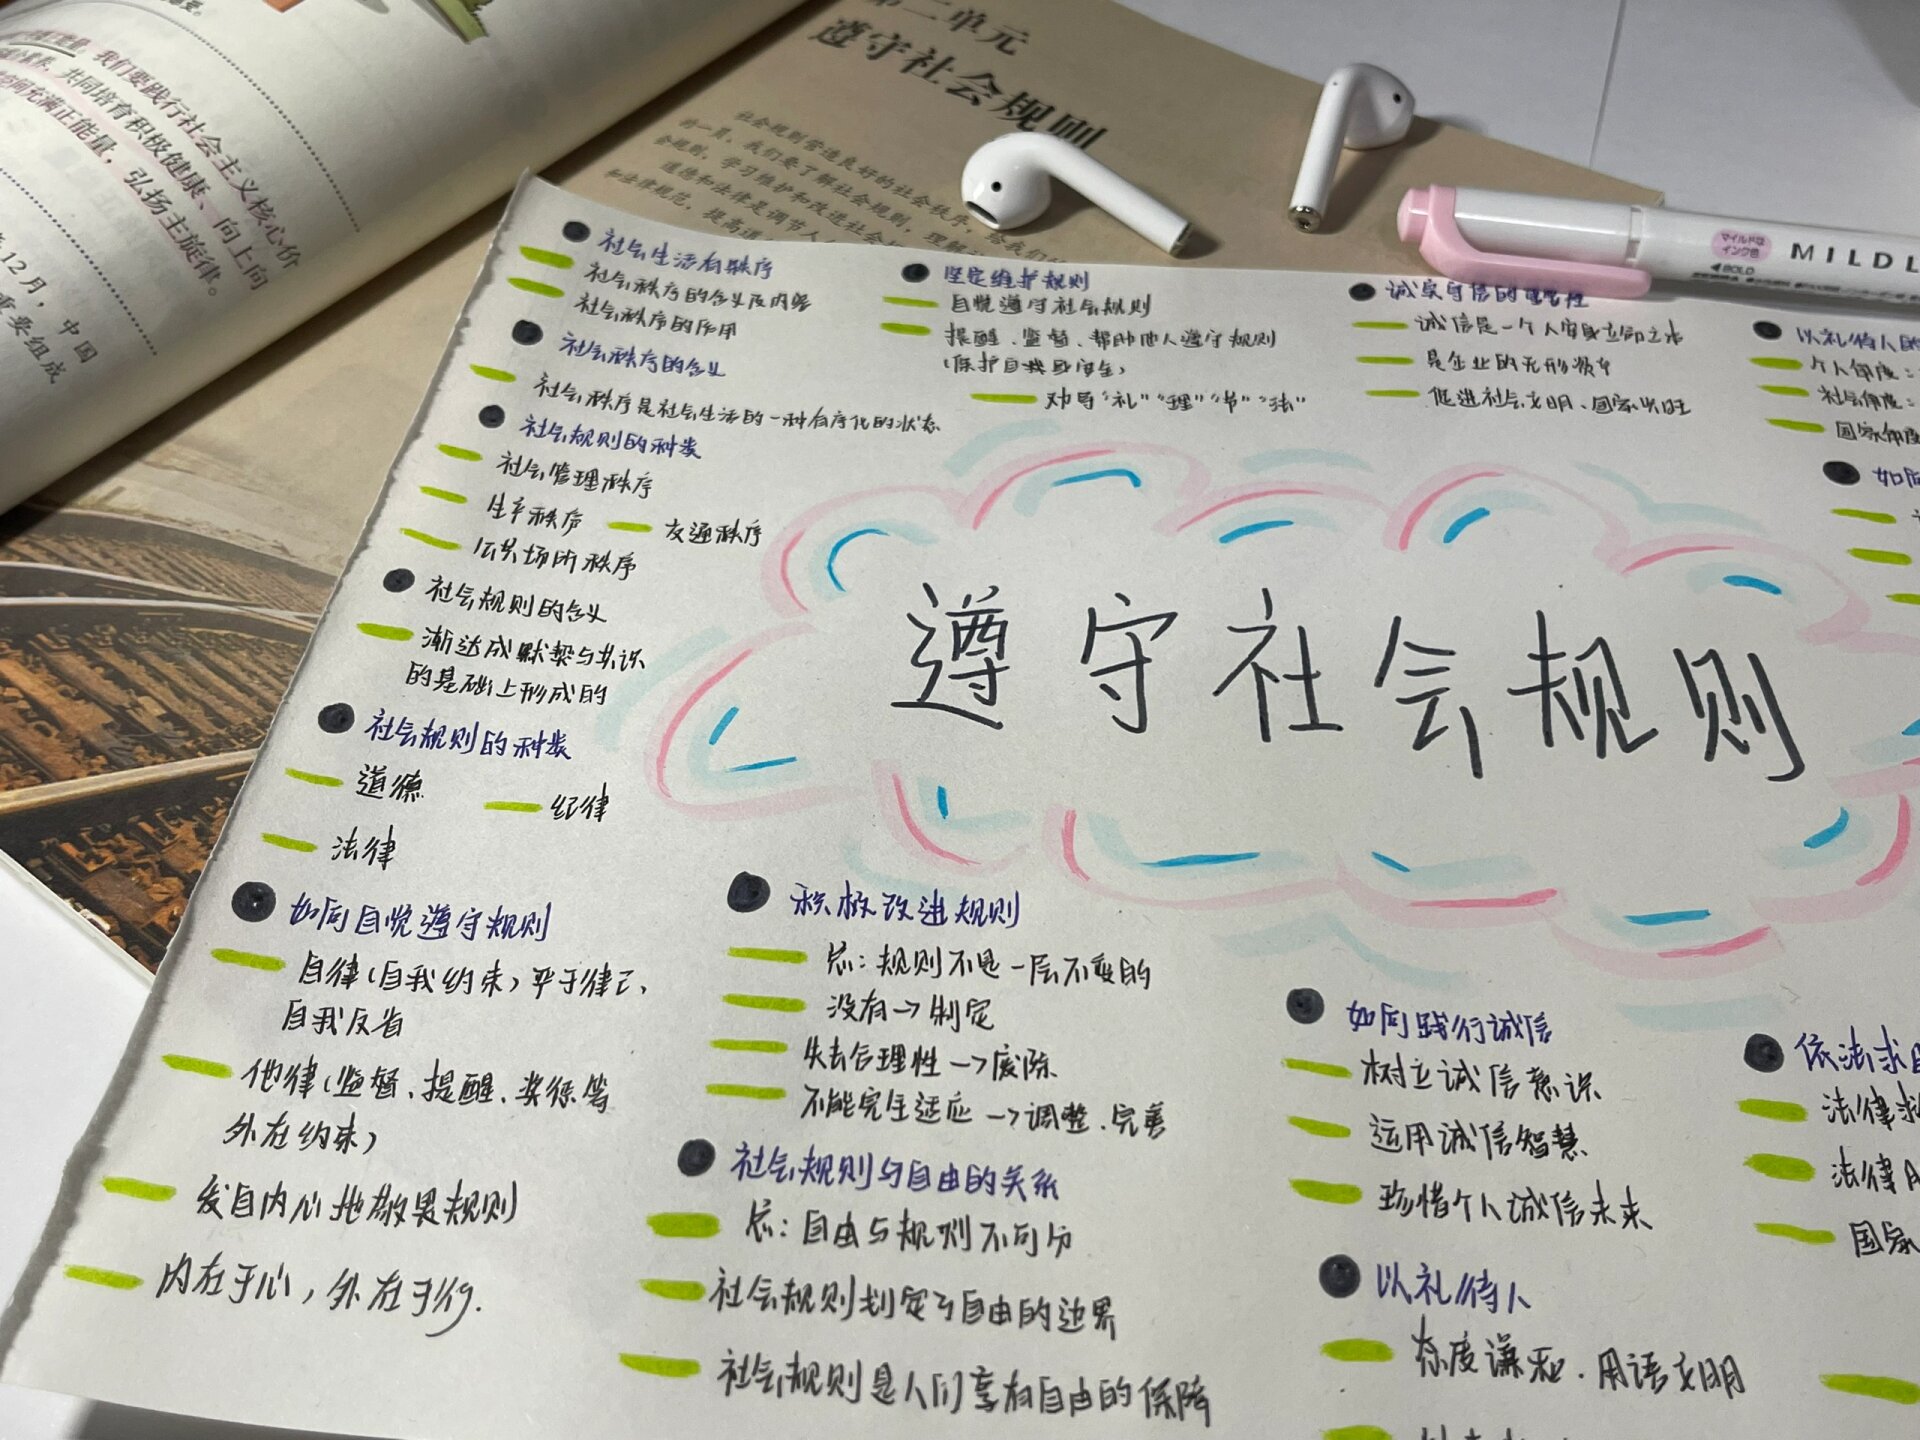 我们要践行社会主义核心价
共同培育积极健康、向上向
充满正能量，弘扬主旋律。
12月，中国
重要组成
第二单元
遵守社会规则
社会规则营造良好的社会秩序，给我们
的一员，我们要了解社会规则，理解
会规则，学习维护和改进社会
道德和法律是调节人
和法律规范，提高道
マイルドな
インク色
BOLD
MILDL
社会生活有秩序
社会秩序的含义及内容
社会秩序的作用
社会秩序的含义
社会秩序是社会生活的一种有序化的状态
社会规则的种类
社会管理秩序
生产秩序
交通秩序
公共场所秩序
社会规则的含义
渐达成默契与共识
的基础上形成的
社会规则的种类
道德
纪律
法律
如何自觉遵守规则
自律（自我约束）严于律己、
自我反省
他律（监督、提醒、奖惩等
外在约束）
发自内心地敬畏规则
内在于心，外在于行.
坚定维护规则
自觉遵守社会规则
提醒、监督、帮助他人遵守规则
（保护自我及安全）
劝导“礼”“理”“节”“法”
诚实守信的重要性
诚信是一个人安身立命之本
是企业的无形资产
促进社会文明、国家兴旺
以礼待人的
个人角度：
社会角度：
国家角度
如何
遵守社会规则
积极改进规则
总：规则不是一层不变的
没有→制定
失去合理性→废除
不能完全适应→调整、完善
社会规则与自由的关系
总：自由与规则不可分
社会规则划定了自由的边界
社会规则是人们享有自由的保障
如何践行诚信
树立诚信意识
运用诚信智慧
珍惜个人诚信未来
以礼待人
态度谦和、用语文明
依法求
法律求
法律
国家